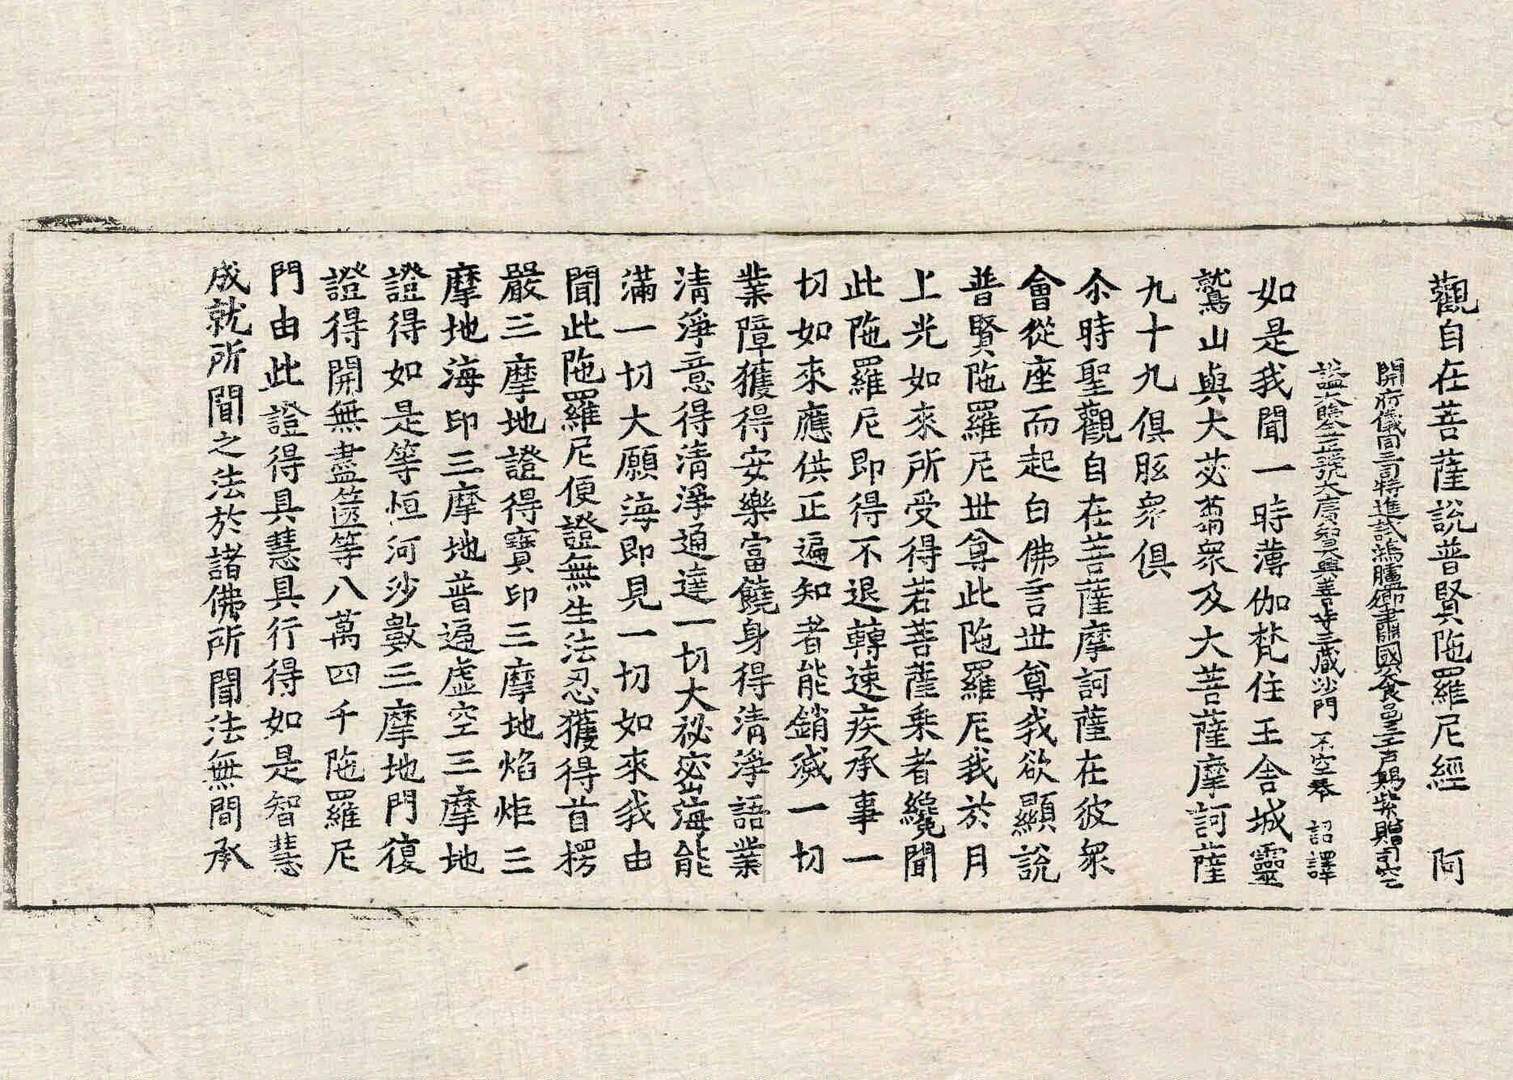 觀自在菩薩說普賢陁羅尼經　阿
開府儀同三司特進試鴻臚卿肅國公食邑三千戶賜紫贈司空
謚大鑒正號大廣智大興善寺三藏沙門不空奉　詔譯
如是我聞一時薄伽梵住王舍城靈
鷲山與大苾蒭衆及大菩薩摩訶薩
九十九俱胝衆俱
尒時聖觀自在菩薩摩訶薩在彼衆
會從座而起白佛言世尊我欲顯說
普賢陁羅尼世尊此陁羅尼我於月
上光如來所受得若菩薩乘者纔聞
此陁羅尼即得不退轉速疾承事一
切如來應供正遍知者能銷滅一切
業障獲得安樂富饒身得清淨語業
清淨意得清淨通達一切大祕密海能
滿一切大願海即見一切如來我由
聞此陁羅尼便證無生法忍獲得首楞
嚴三摩地證得寶印三摩地焰炬三
摩地海印三摩地普遍虛空三摩地
證得如是等恒河沙數三摩地門復
證得開無盡篋等八萬四千陁羅尼
門由此證得具慧具行得如是智慧
成就所聞之法於諸佛所聞法無間承